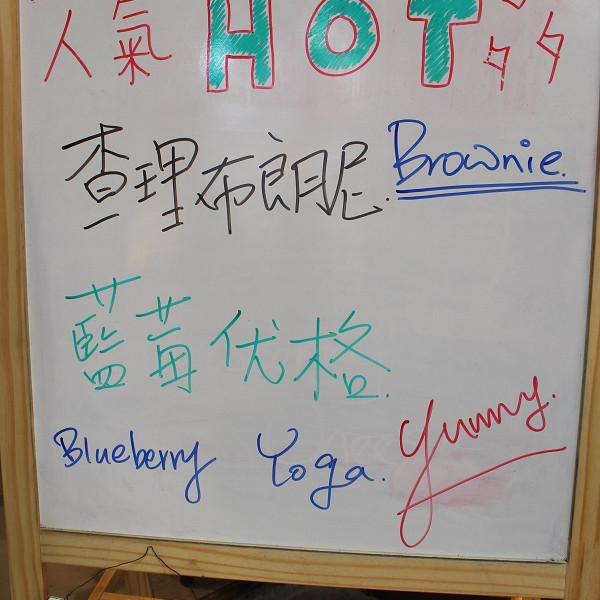 人氣 HOT
查理布朗昵. Brownie.
藍莓优格.
Blueberry Yoga. Yummy.